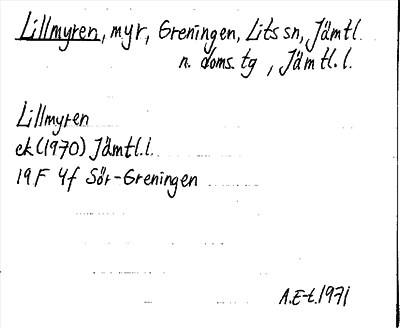 Lillmyren, myr, Greningen, Lits sn, Jämtl.
n. doms. tg, Jämtl. l.
Lillmyren
ek (1970) Jämtl. l.
19 F 4f Sör-Greningen
A.E-t. 1971